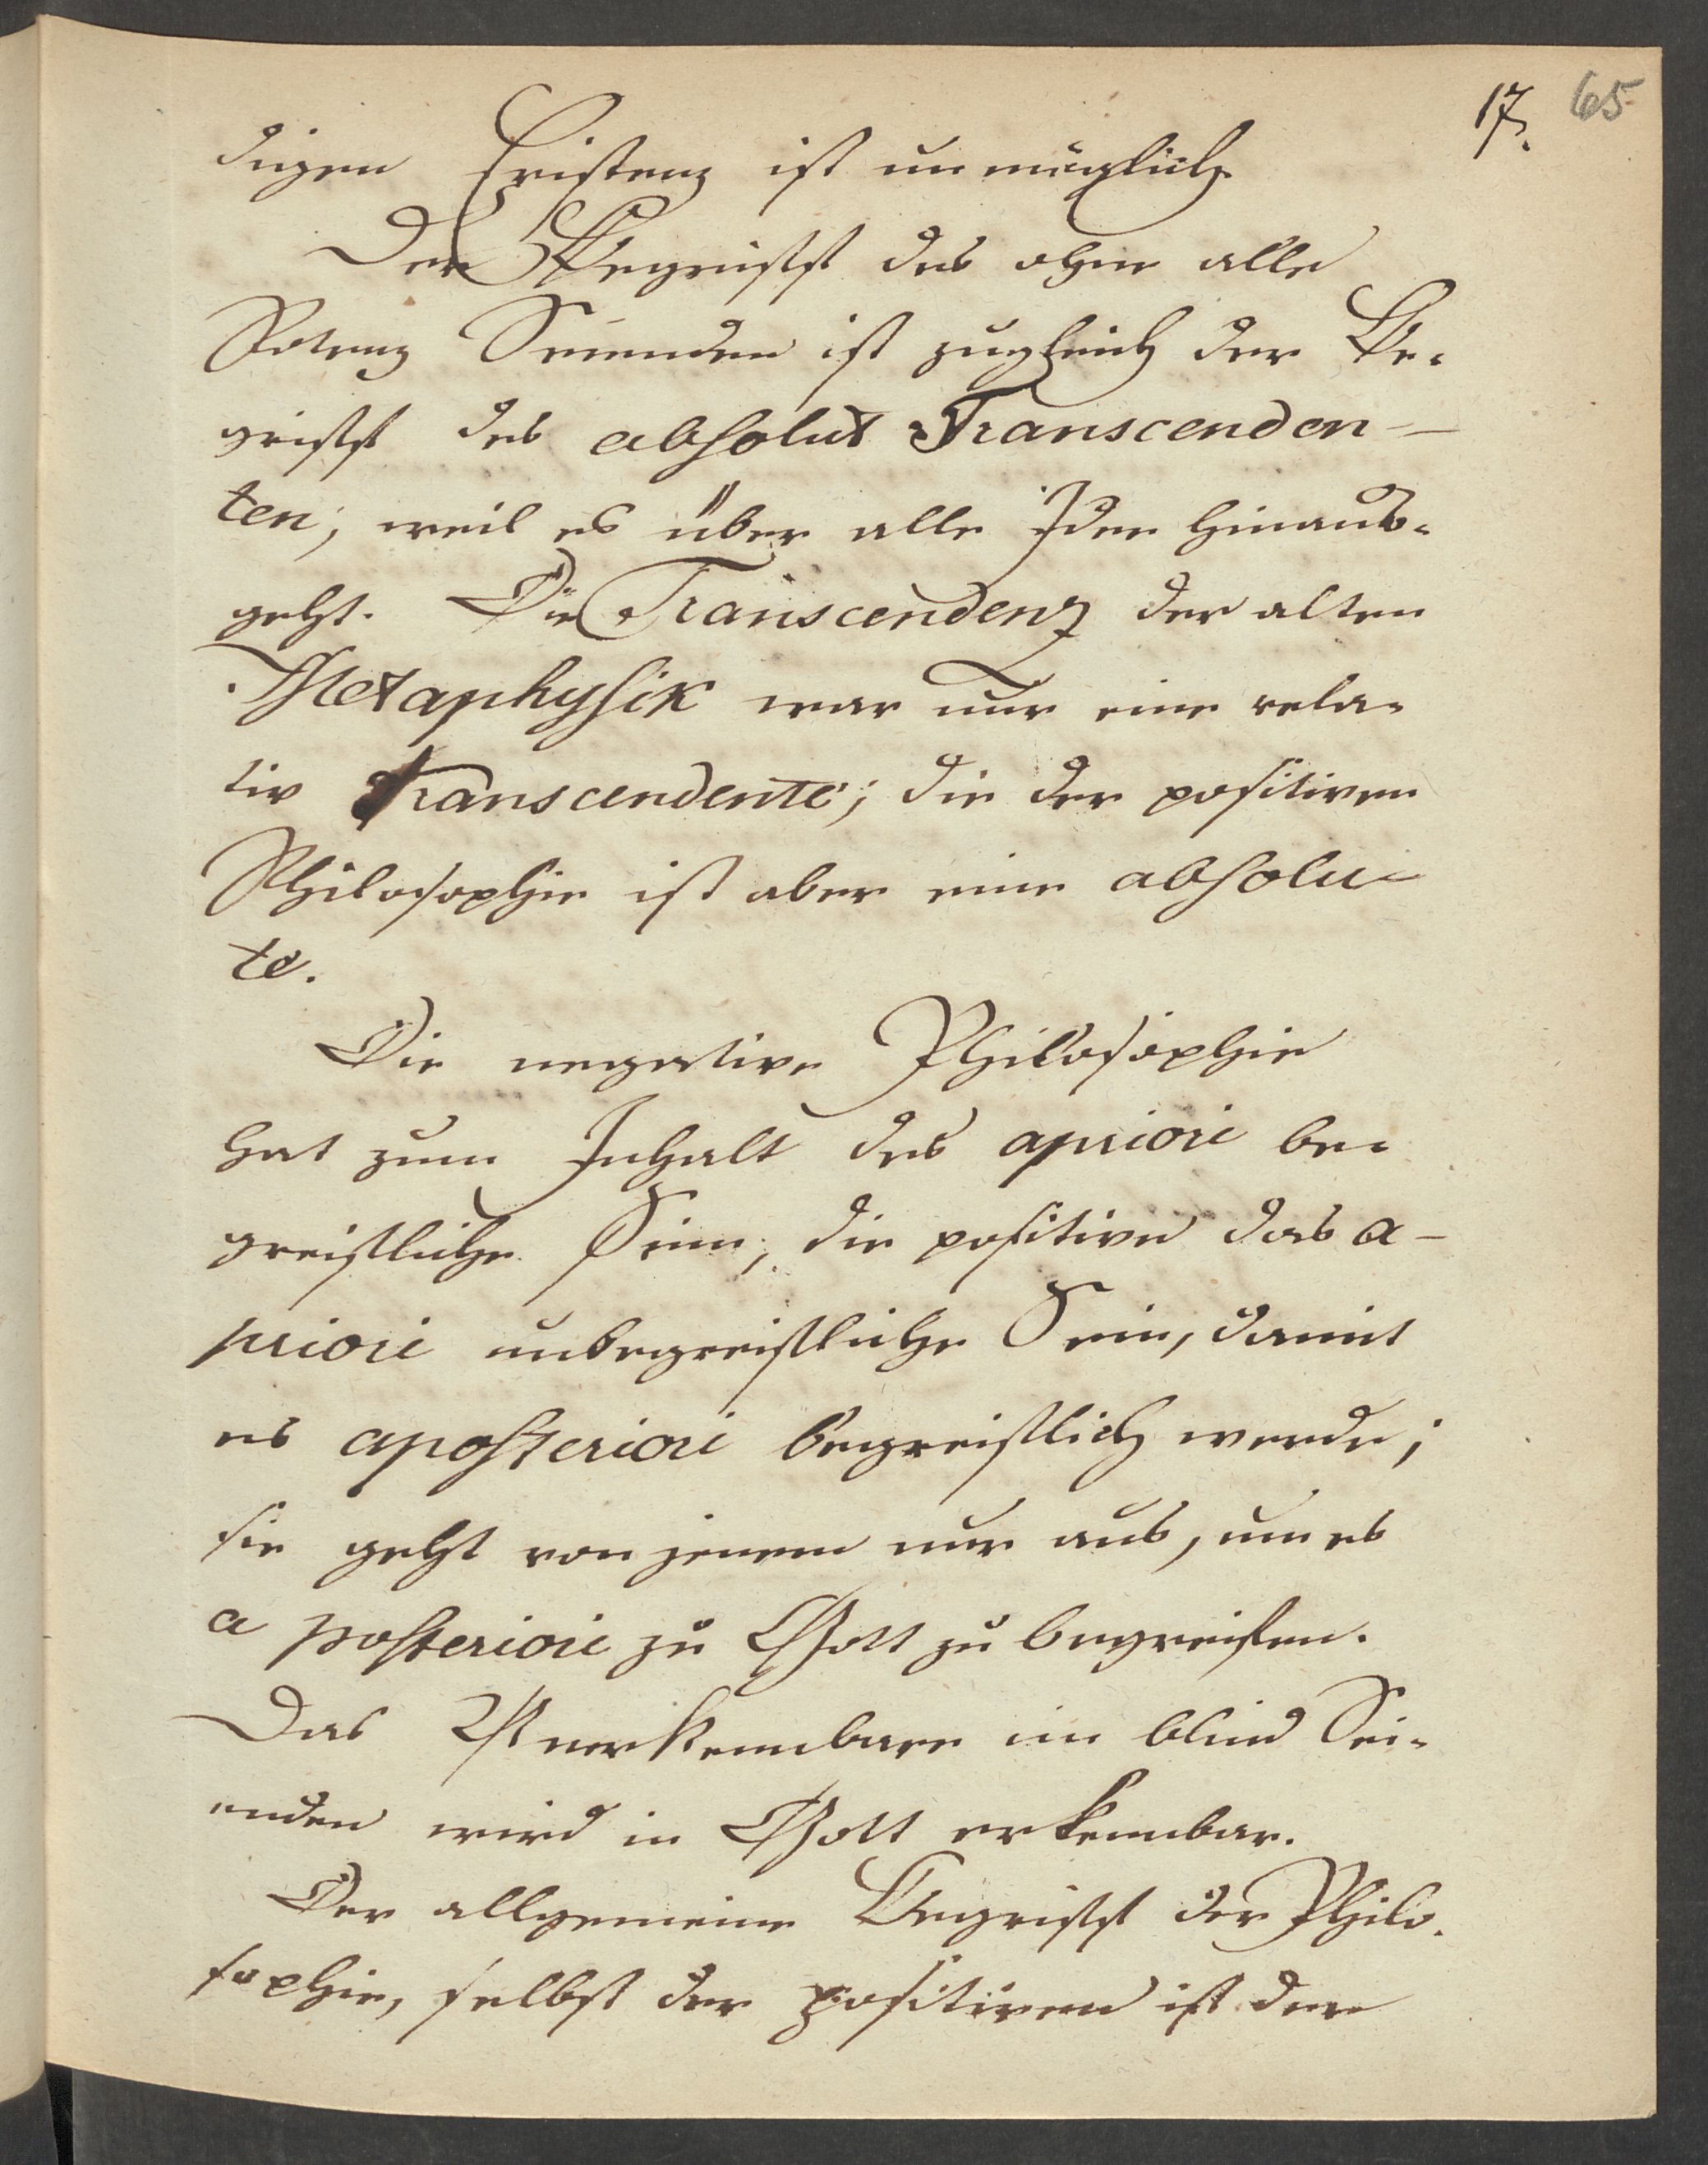 17. 65
digen Existenz ist unmöglich
Der Begriff des ohne alle
Potenz Seienden ist zugleich der Be-
griff des absolut Transcenden-
ten, weil es über alle Idee hinaus-
geht. Die Transcendenz der alten
Metaphysik war nur eine rela-
tiv Transcendente; die der positiven
Philosophie ist aber eine absolu-
te.
Die negative Philosophie
hat zum Inhalt das apriori be-
greifliche Sein, die positive das a-
priori unbegreifliche Sein, damit
es aposteriori begreiflich werde;
sie geht von jenem nur aus, um es
a posteriori zu Gott zu begreifen.
Das Unerkennbare im blind Sei-
enden wird in Gott erkennbar.
Der allgemeine Begriff der Philo-
sophie, selbst der positiven ist der